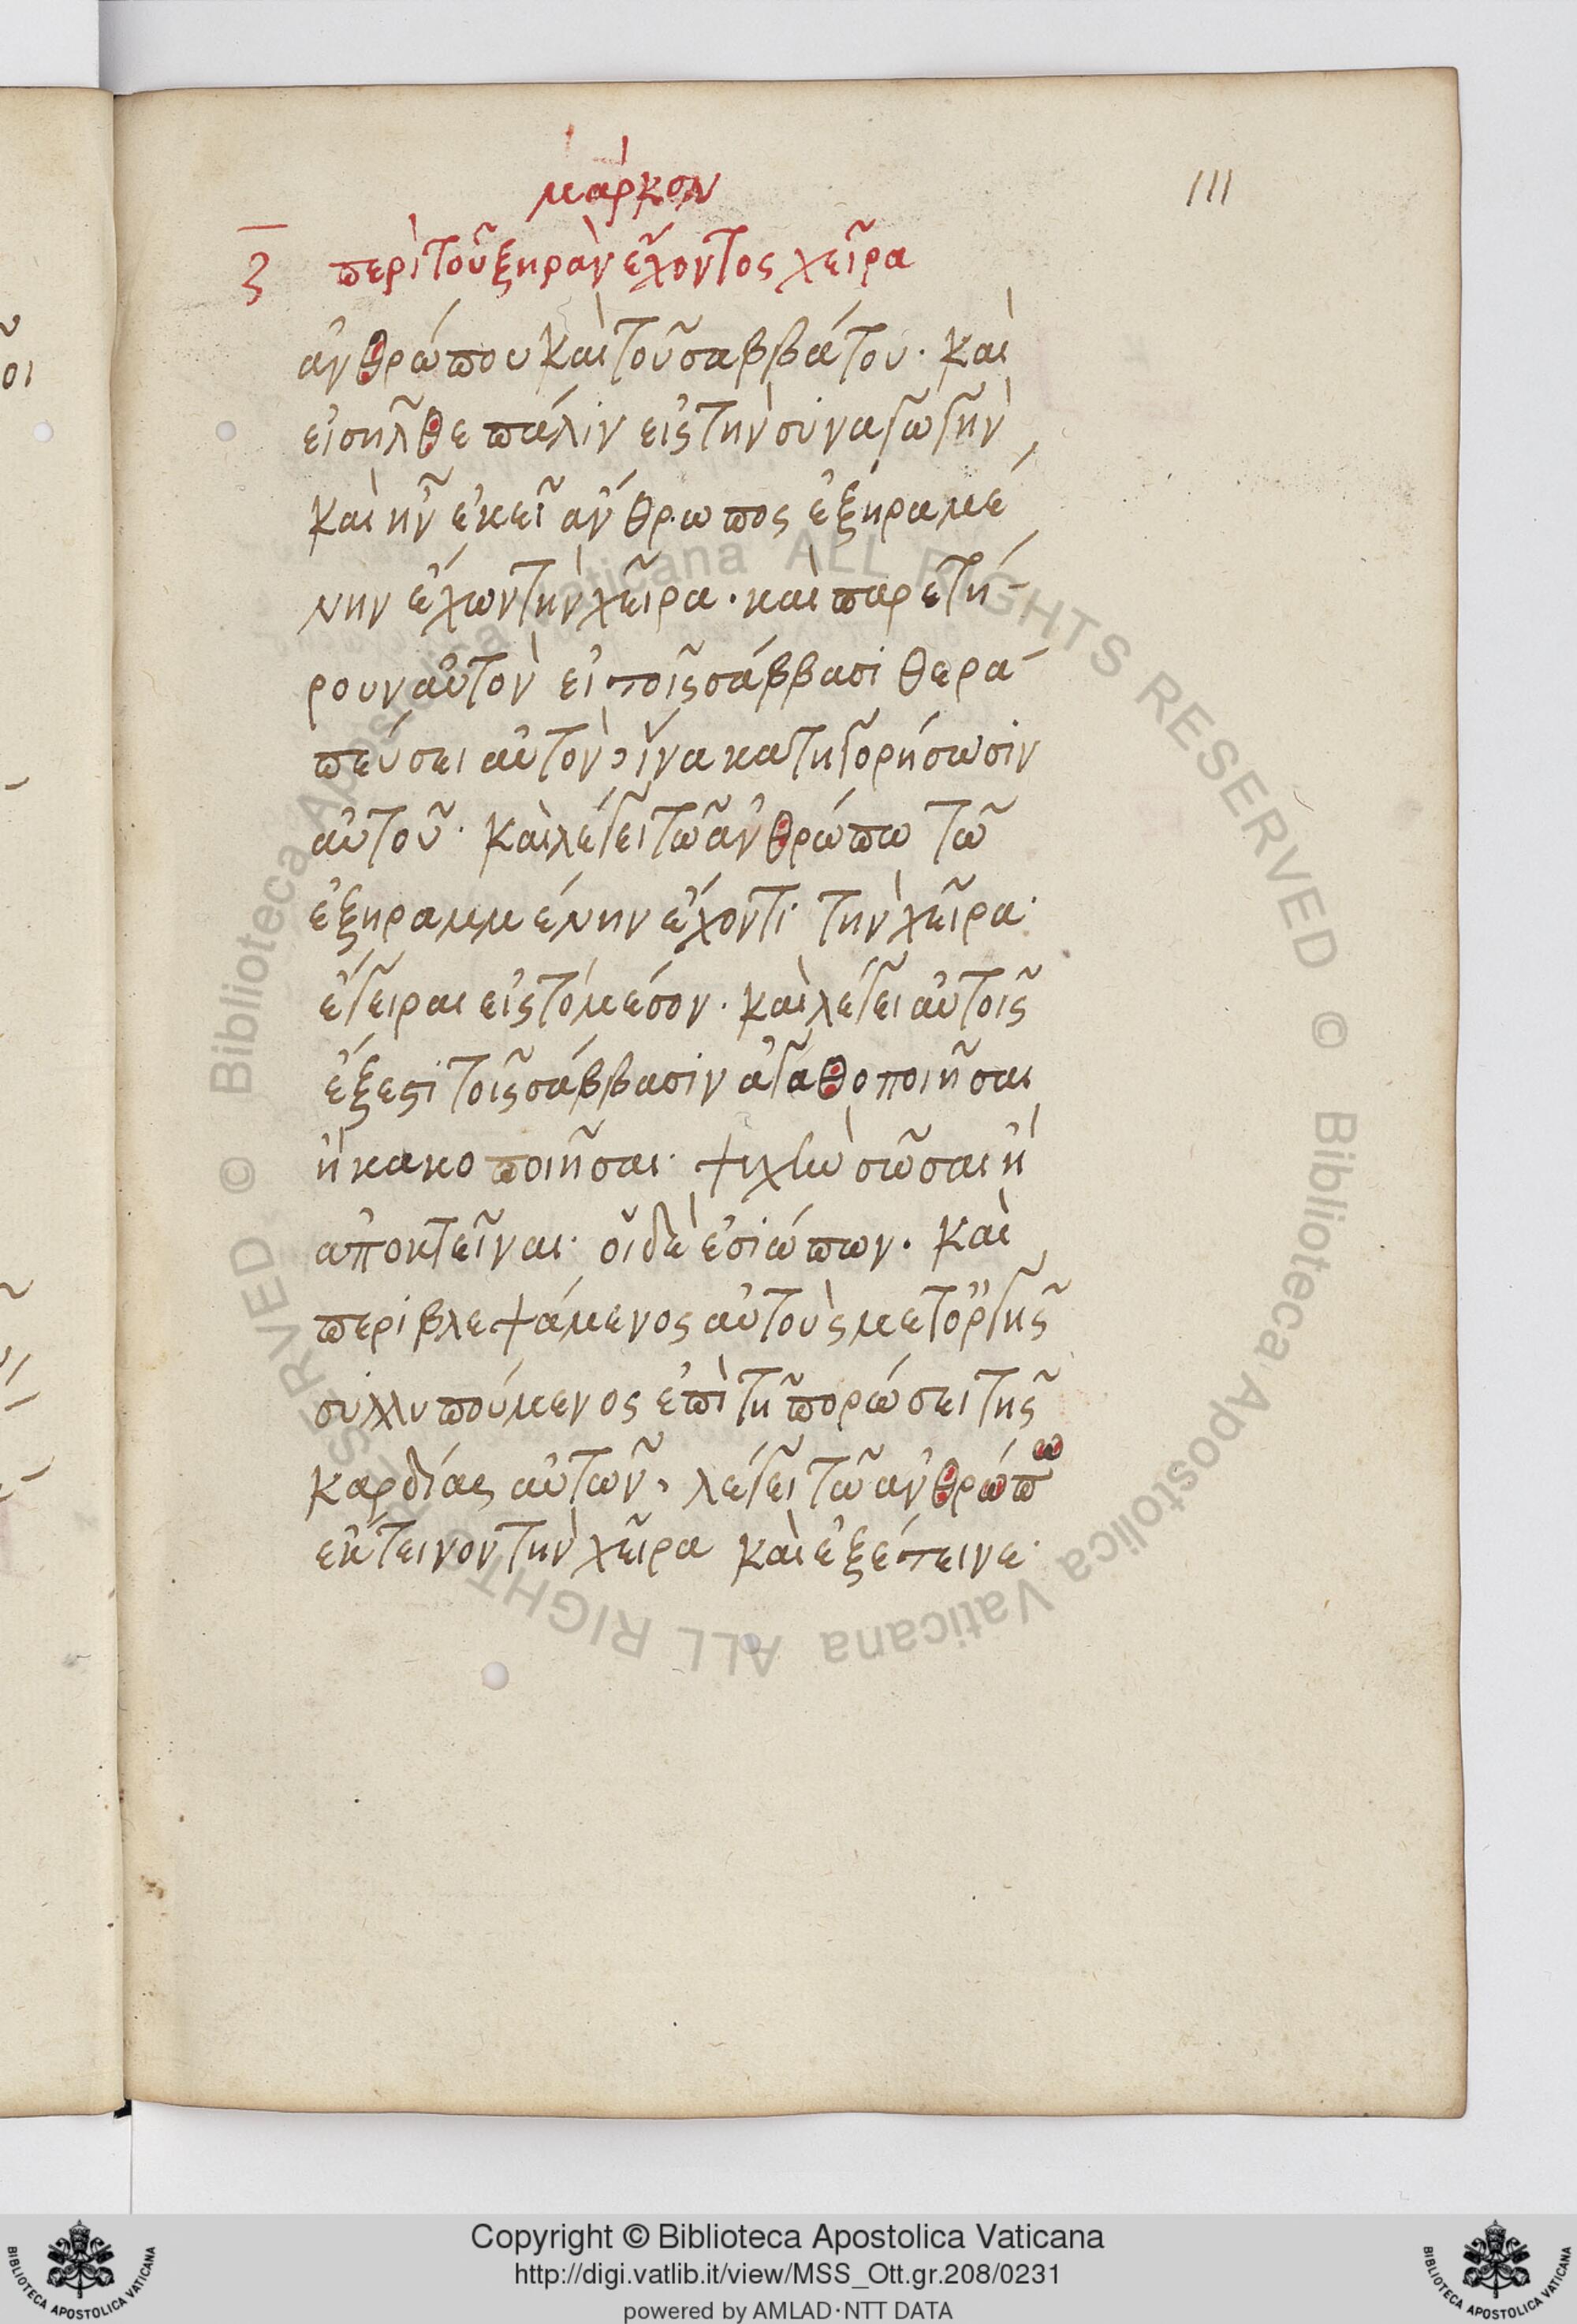 μάρκον
111
ζ περὶ τοῦ ξηρὰν ἔχοντος χεῖρα
ἀνθρώπου καὶ τοῦ σαββάτου· καὶ
εἰσῆλθε πάλιν εἰς τὴν συναγωγὴν,
καὶ ἦν ἐκεῖ ἄνθρωπος ἐξηραμέ
νην ἔχων τὴν χεῖρα· καὶ παρετή-
ρουν αὐτὸν εἰ τοῖς σάββασι θερα-
πεύσει αὐτὸν, ἵνα κατηγορήσωσιν
αὐτοῦ· καὶ λέγει τῶ ἀνθρώπω τῶ
ἐξηραμμένην ἔχοντι τὴν χεῖρα·
ἔγειραι εἰς τὸ μέσον· καὶ λέγει αὐτοῖς
ἔξεστι τοῖς σάββασιν ἀγαθοποιῆσαι
ἢ κακοποιῆσαι· ψυχὴν σῶσαι ἢ
ἀποκτεῖναι· οἱ δὲ ἐσιώπων· καὶ
περιβλεψάμενος αὐτοὺς μετ ὀργῆς
συλλυπούμενος ἐπὶ τῆ πορώσει τῆς
καρδίας αὐτῶν, λέγει τῶ ἀνθρώπω
ἔκτεινον τὴν χεῖρα καὶ ἐξέτεινε·
Biblioteca Apostolica Vaticana ALL RIGHTS RESERVED © Biblioteca Apostolica Vaticana ALL RIGHTS RESERVED ©
Copyright © Biblioteca Apostolica Vaticana
http://digi.vatlib.it/view/MSS_Ott.gr.208/0231
powered by AMLAD·NTT DATA
BIBLIOTECA APOSTOLICA VATICANA
BIBLIOTECA APOSTOLICA VATICANA